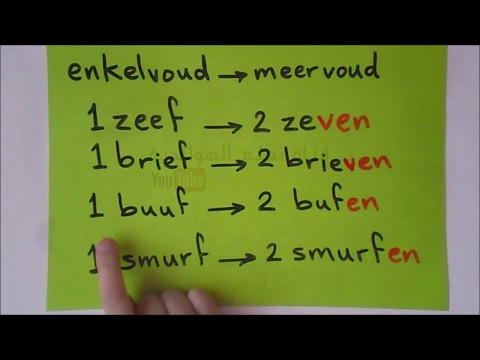 enkelvoud → meervoud
1 zeef → 2 zeven
1 brief → 2 brieven
YouTube
1 buuf → 2 bufen
1 smurf → 2 smurfen